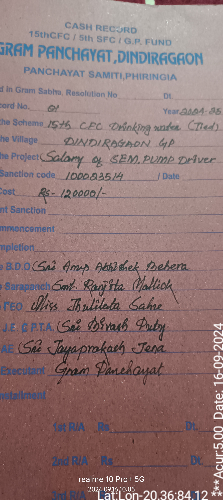 CASH RECORD
15thCFC / 5th SFC / G.P. FUND
GRAM PANCHAYAT, DINDIRAGAON
PANCHAYAT SAMITI, PHIRINGIA
d in Gram Sabha. Resolution No. Dt.
ord No. 01 Year 2024-25
the Scheme 15th CFC Drinking water (Tied)
he Village DINDIRAGAON GP
the Project Salary of SEM, PUMP Driver
Sanction code 100083514 / Date
Cost Rs- 120000/-
nt Sanction
mmencement
mpletion
B.D.O (Sri Anup Abhishek Behera
Sarapanch Smt. Ranjita Mallick
PEO Miss Sahu
J.E G.P.T.A. (Sri
AE (Sri Jayaprakash Jena
Executant Gram Panchayat
1st R/A Rs. Dt.
2nd R/A Rs. Dt.
realme 10 Pro+ 5G
Lat:Lon-20.3684,12
Acur:5.00 Date: 16-09-2024